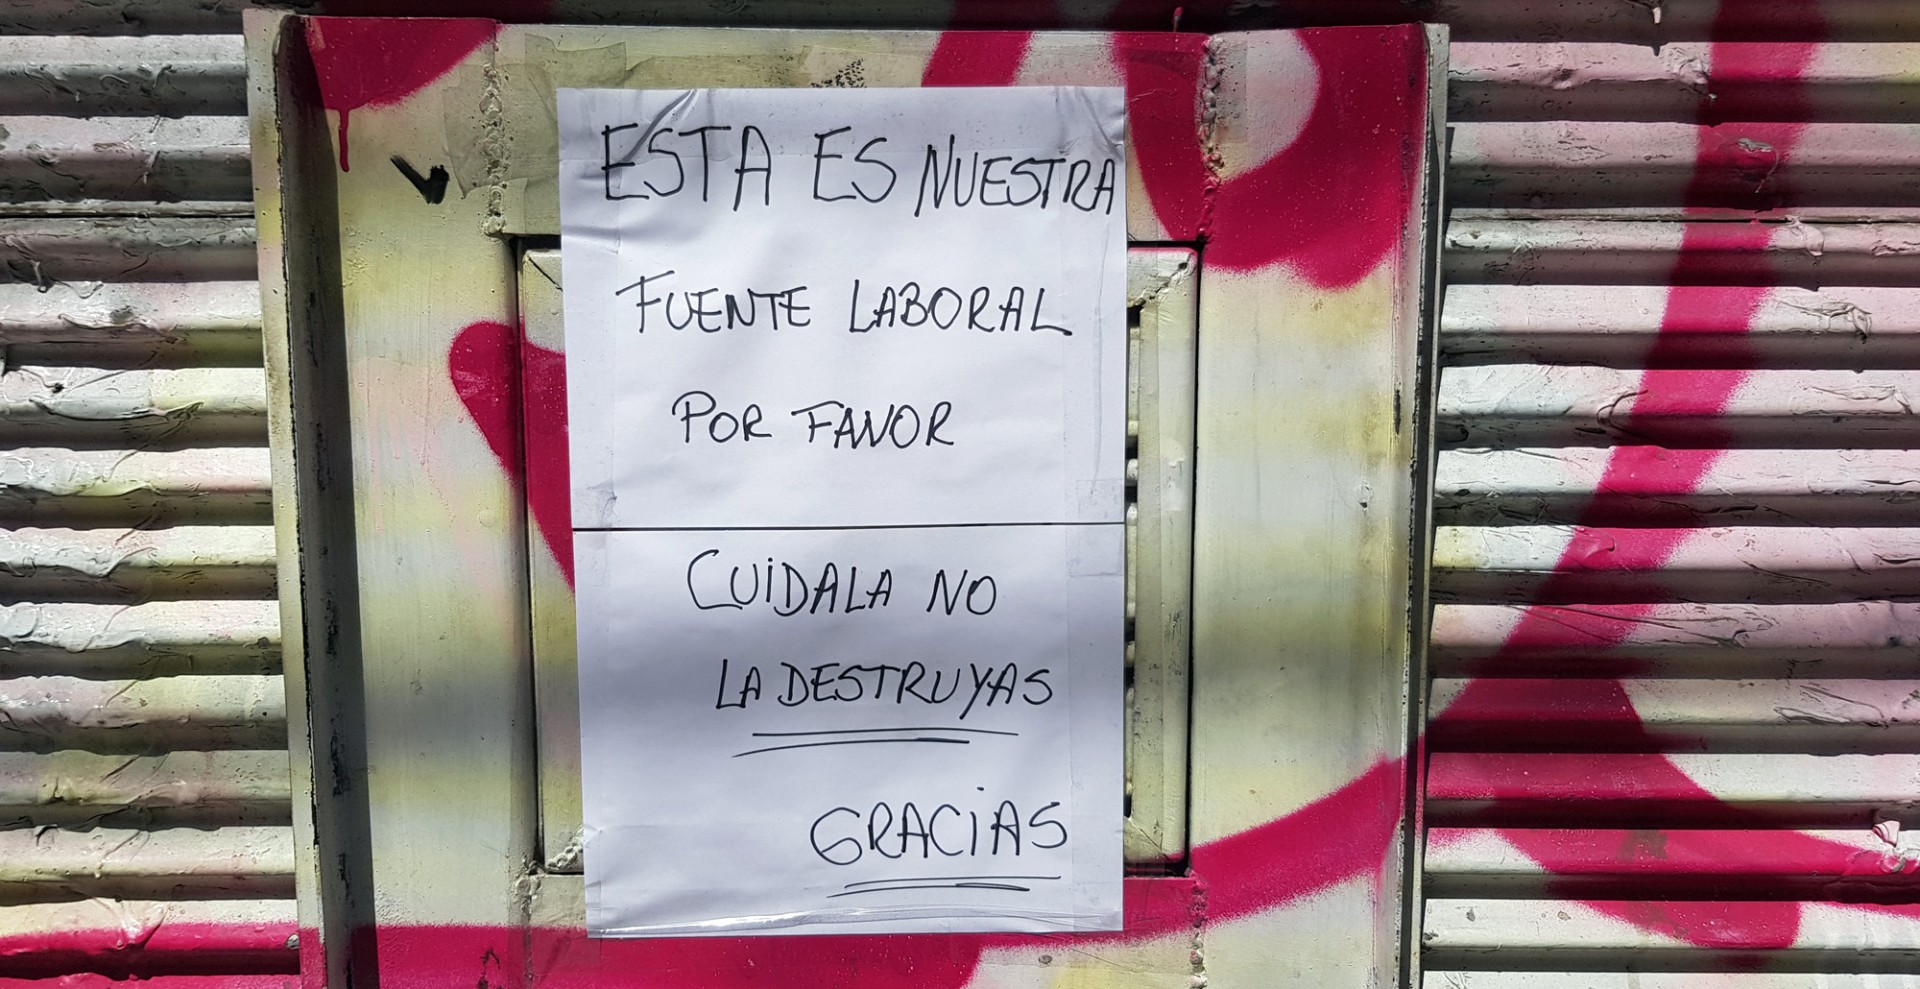 ESTA ES NUESTRA
FUENTE LABORAL
POR FAVOR
CUIDALA NO
LA DESTRUYAS
GRACIAS